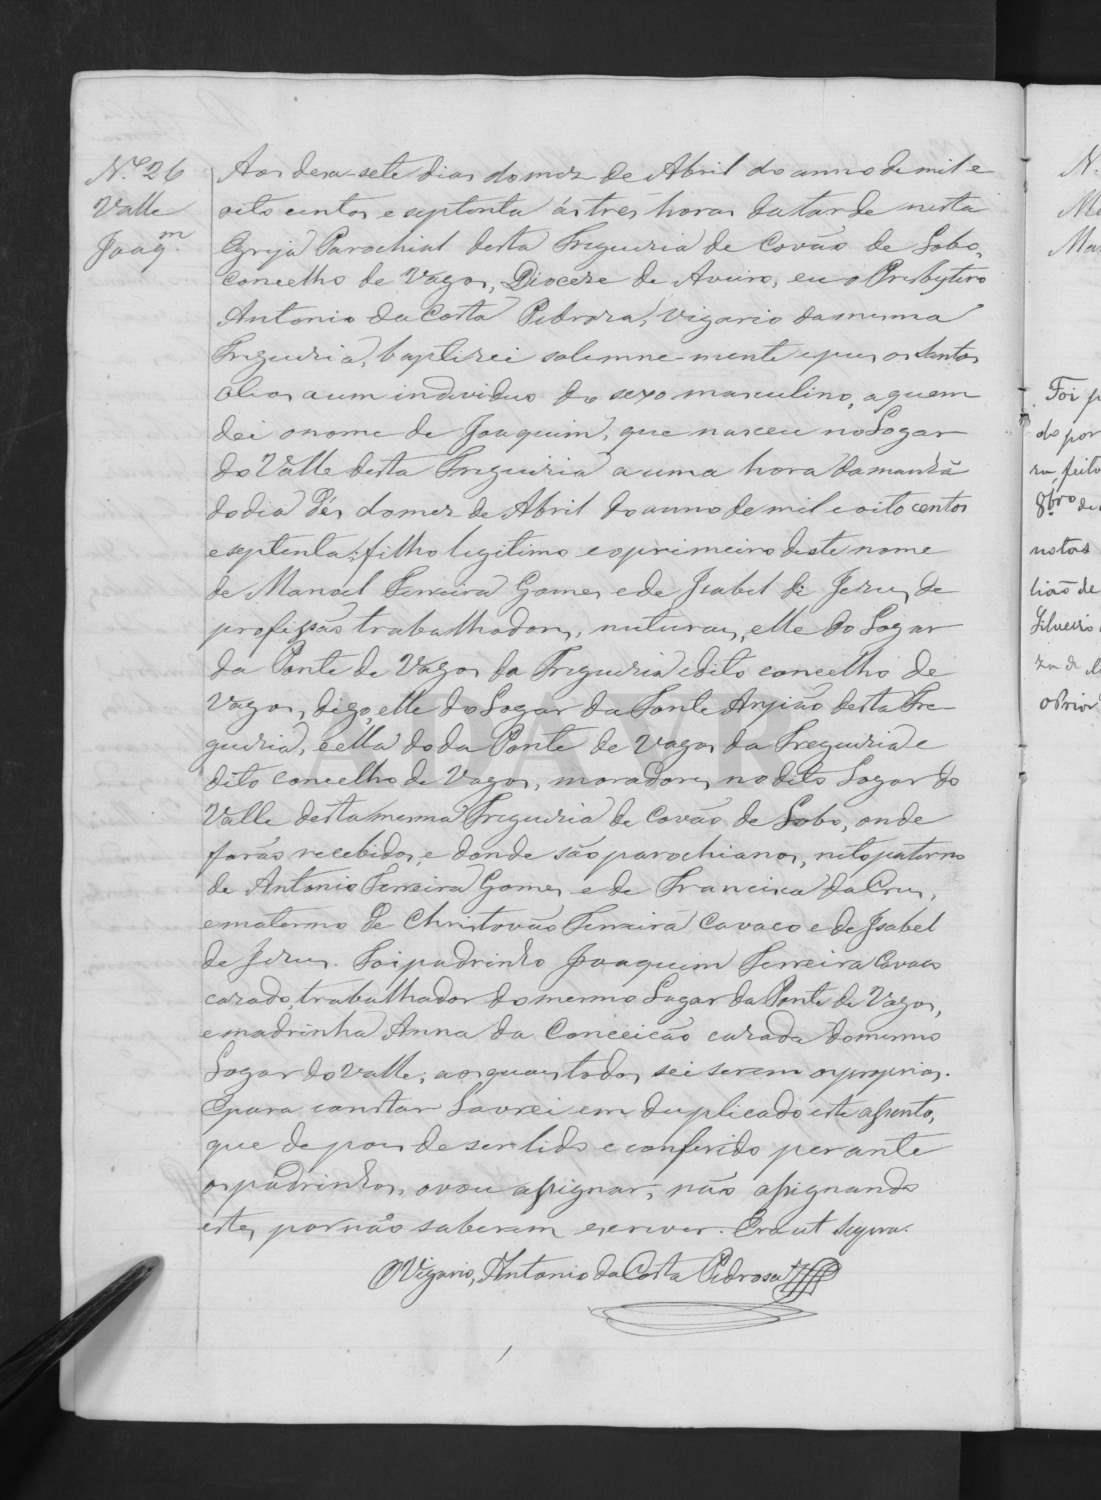 N.º 26
Valle
Joaqm.
Aos deza-sete dias do mez de Abril do anno de mil e
oito centos e septenta ás tres horas da tarde nesta
Egreja Parochial desta Freguezia de Covão de Lobo,
concelho de Vagos, Diocese de Aveiro, eu o Presbytero
Antonio da Costa Pedroza, Vigario da mesma
Freguezia, baptizei solemne-mente e puz os Santos
óleos a um individuo do sexo masculino, a quem
dei o nome de Joaquim, que nasceu no Logar
do Valle desta Freguezia a uma hora da manhã
do dia déz do mez de Abril do anno de mil e oito centos
e septenta: filho legitimo e o primeiro deste nome
de Manoel Ferreira Gomes e de Isabel de Jezus, de
profissão trabalhadores, naturaes, elle do Logar
da Ponte de Vagos da Freguezia e dito concelho de
Vagos, digo, elle do Logar da Fonte Anjião desta Fre-
guezia, e ella do da Ponte de Vagos da Freguezia e
dito concelho de Vagos, moradores no dito Logar do
Valle desta mesma Freguezia de Covão de Lobo, onde
forão recebidos, e donde são parochianos, neto paterno
de Antonio Ferreira Gomes e de Francisca da Cruz,
e materno de Christovão Ferreira Cavaco e de Isabel
de Jezus. Foi padrinho Joaquim Ferreira Cavaco
cazado, trabalhador do mesmo Lugar da Ponte de Vagos,
e madrinha Anna da Conceicão cazada do mesmo
Logar do Valle, aos quaes todos sei serem os proprios.
E para constar Lavrei em duplicado este assento,
que depois de ser lido e conferido perante
os padrinhos, o vou assignar, não assignando
estes por não saberem escrever. Era ut supra.
O Vigario, Antonio da Costa Pedrosa
ADAVR
N.
Ma
Foi p
do por
ra, feito
8bro de
notas
lião de
Silveiro
o Prior